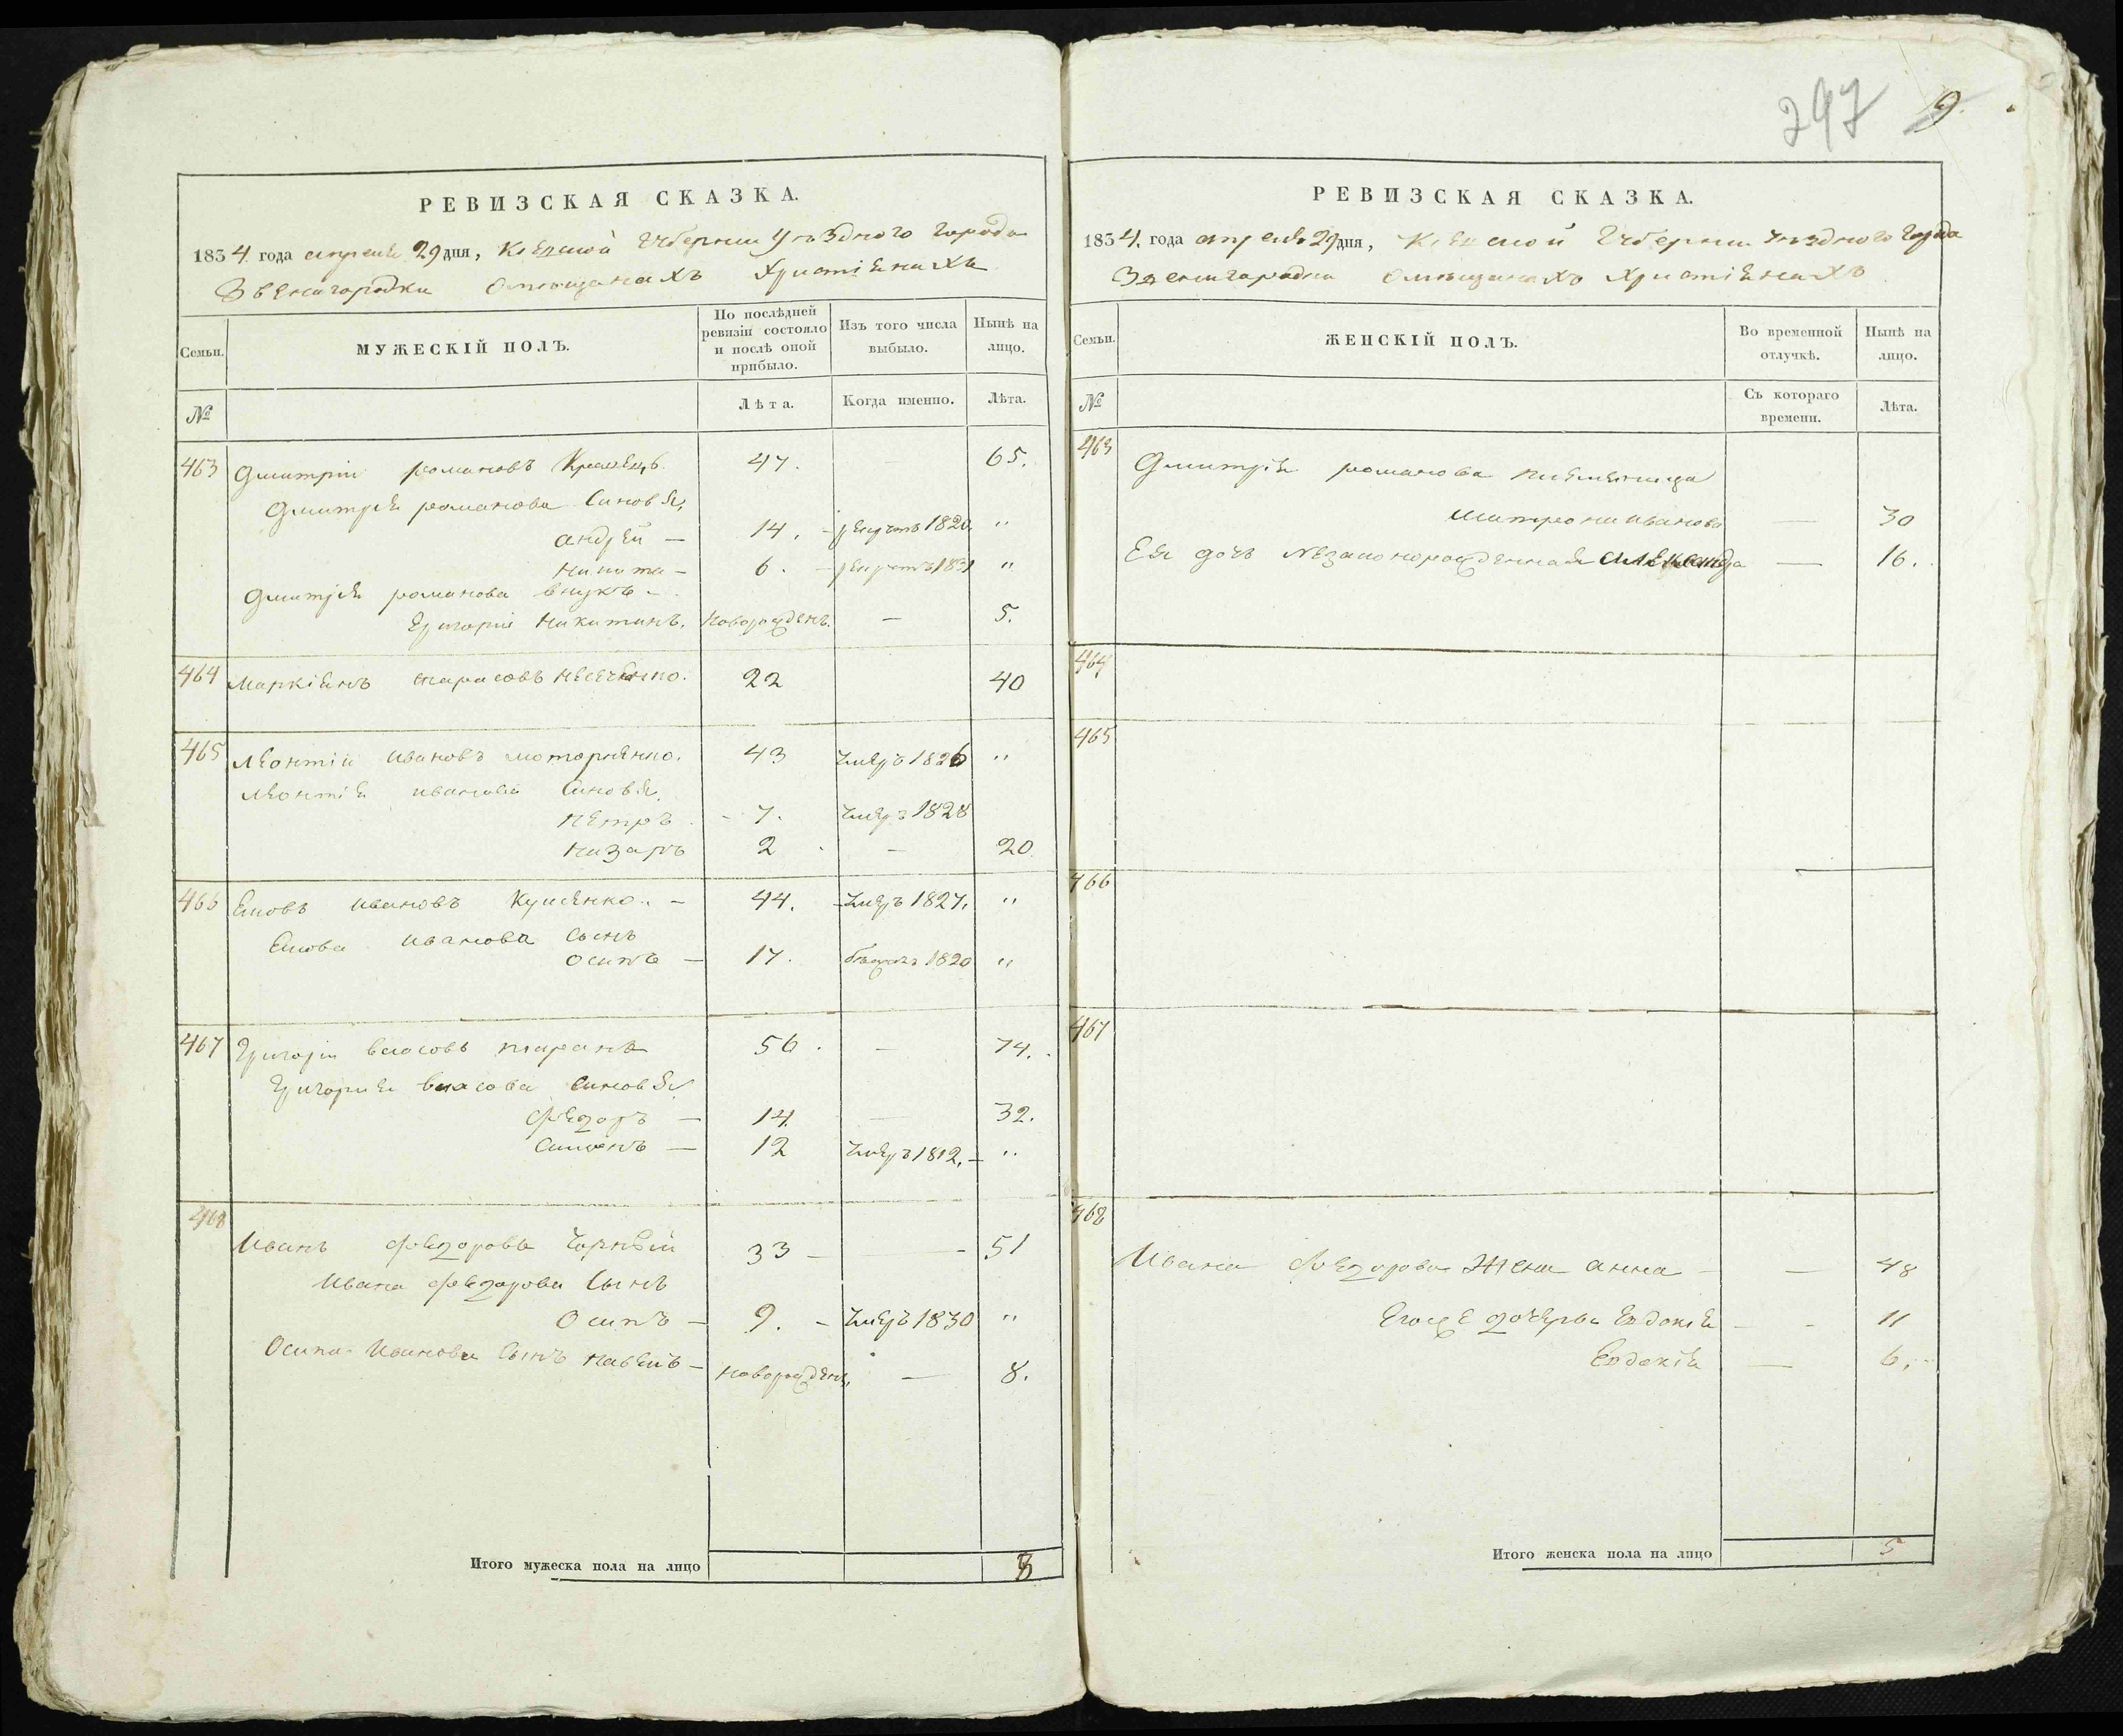 297 9.
РЕВИЗСКАЯ СКАЗКА.
1834 года апреля 29 дня, Киевской Губернии Уѣздного города
Звенигородки Омѣщанахъ Христіянахъ
Семьи.
МУЖЕСКІЙ ПОЛЪ.
По послѣдней ревизіи состояло и послѣ оной прибыло.
Изъ того числа выбыло.
Нынѣ на лицо.
№
Лѣта.
Когда именно.
Лѣта.
463 Дмитрій романовъ 47. — 65.
Дмитрія романова Синовья,
андрей — 14. - рекрутъ 1820. "
никита — 6. - рекрутъ 1831 "
Дмитрія романова внукъ -
Григорій Никитинъ. Новорожденъ. — 5.
464 Маркіянъ тарасовъ 22 40
465 Леонтій Ивановъ моторненко. 43 Умеръ 1826 "
Леонтія иванова Синовья,
петръ - 7. Умеръ 1828
Назаръ 2 — 20
466 Яковъ Ивановъ - 44. - Умеръ 1827. "
Якова Иванова Сынъ
Осипъ — 17. бежалъ 1820 "
467 Григорій власовъ таранъ 56. — 74.
Григорія власова Синовья,
Федоръ — 14. — 32.
Симонъ — 12 Умеръ 1812. — "
468
Иванъ Федоровъ Чорный 33 — - 51
Ивана Федорова Сынъ
Осипъ — 9. - Умеръ 1830 "
Осипа Иванова Сынъ павелъ — Новорожден. — 8.
Итого мужеска пола на лицо 8
РЕВИЗСКАЯ СКАЗКА.
1834. года апреля 29 дня, Киевской Губернии Уѣздного Города
Звенигородки Омѣщанахъ Христіянахъ
Семьи.
ЖЕНСКІЙ ПОЛЪ.
Во временной отлучкѣ.
Нынѣ на лицо.
№
Съ котораго времени.
Лѣта.
463
Дмитрія романова племяница
Матрона Иванова — 30
Ея дочь Незаконорожденная Александра — 16.
464
465
466
467
468
Ивана Федорова Жена анна — 48
Егоже дочерьи Евдокія - - 11
Евдокія — 6.
Итого женска пола на лицо 5